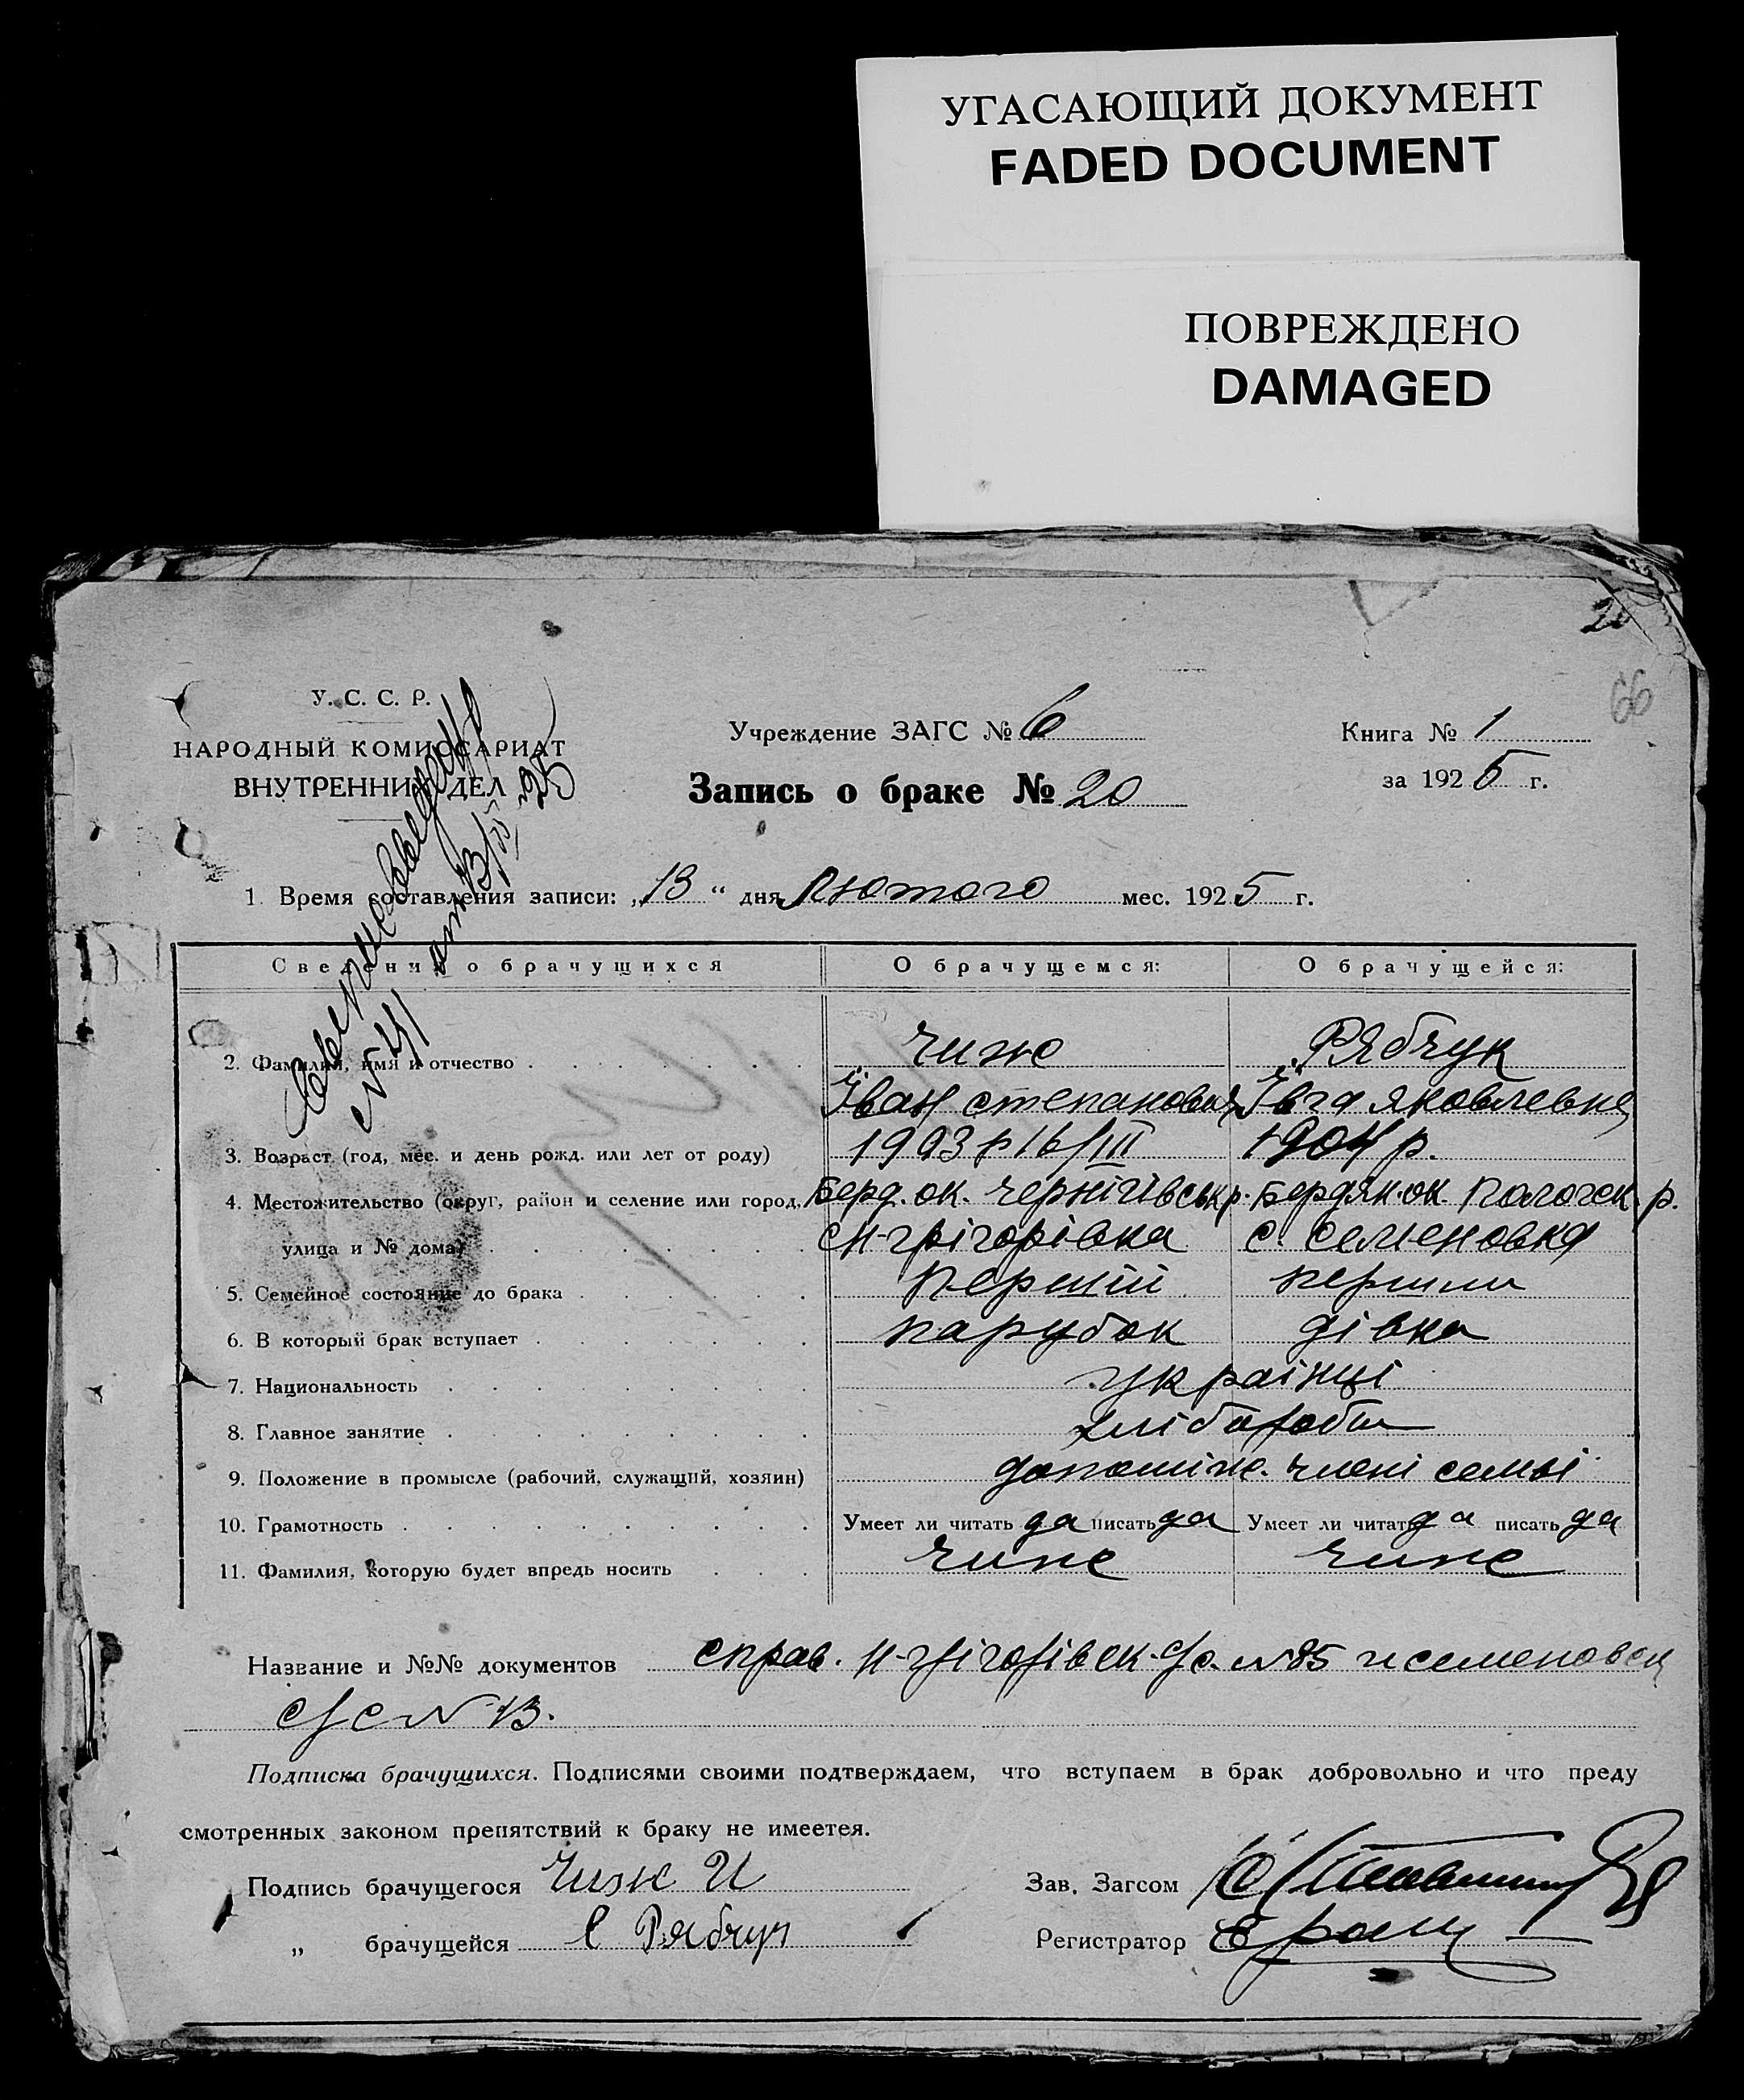 УГАСАЮЩИЙ ДОКУМЕНТ
FADED DOCUMENT
ПОВРЕЖДЕНО
DAMAGED
66
У. С. С. Р.
НАРОДНЫЙ КОМИССАРИАТ
ВНУТРЕННИХ ДЕЛ
Учреждение ЗАГС № 6
Книга № 1
Запись о браке № 20
за 1925 г.
1. Время составления записи: „13“ дня Лютого мес. 1925 г.
Сведения о брачущихся
О брачущемся:
О брачущейся:
2. Фамилия, имя и отчество
Чиж
Рябчук
Іван степанович
Ївга яковлевна
3. Возраст (год, мес. и день рожд. или лет от роду)
1903 р 16/III
1904 р.
4. Местожительство (округ, район и селение или город,
Берд. ок. чернігівськ р.
Бердян. ок. Пологск. р.
улица и № дома)
с Н-грігорівка
с. Семеновка
5. Семейное состояние до брака
перший
перши
6. В который брак вступает
парубок
дівка
7. Национальность
українці
8. Главное занятие
хліборобы
9. Положение в промысле (рабочий, служащий, хозяин)
допоміж. члені семьі
10. Грамотность
Умеет ли читать да писать да
Умеет ли читать да писать да
11. Фамилия, которую будет впредь носить
Чиж
Чиж
Название и №№ документов справ. Н-грігорівск. с/с. № 85 и семеновск
с/с № 13.
Подписка брачущихся. Подписями своими подтверждаем, что вступаем в брак добровольно и что преду
смотренных законом препятствий к браку не имеетея.
Подпись брачущегося Чиж И
Зав. Загсом
„ брачущейся Е Рябчук
Регистратор